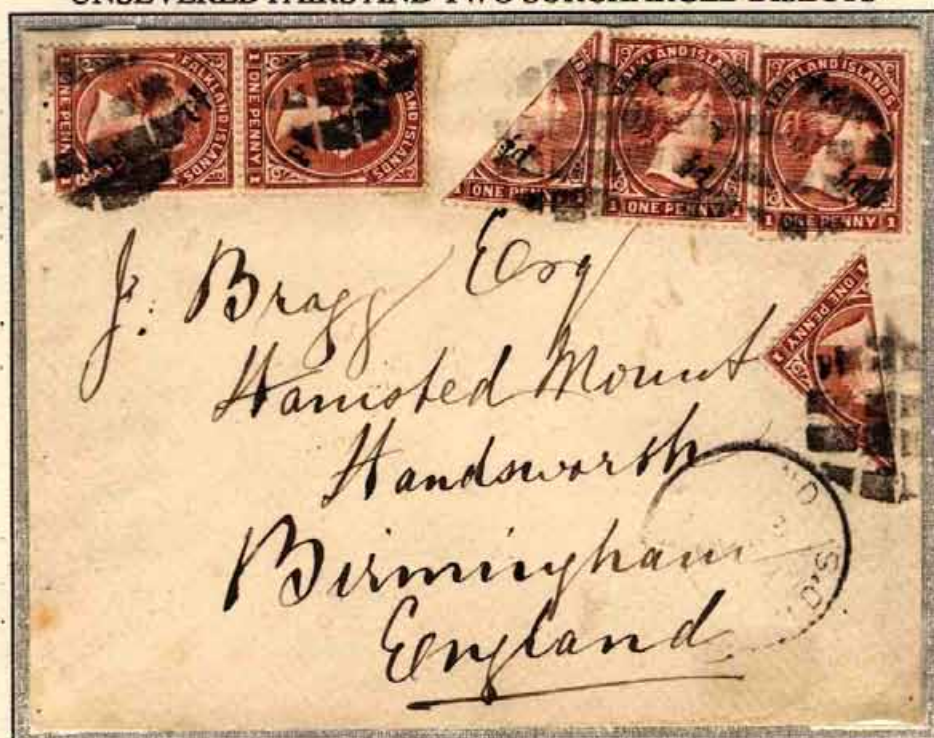 UNSEVERED PAIRS AND TWO SURCHARGED BISECTS
FALKLAND ISLANDS
1 ONE PENNY 1
FALKLAND ISLANDS
1 ONE PENNY 1
1 ONE PENNY 1
FALKLAND ISLANDS
1 ONE PENNY 1
FALKLAND ISLANDS
1 ONE PENNY 1
1 ONE PENNY 1
J. Bragg Esq
Hamsted Mount
Handsworth
Birmingham
England